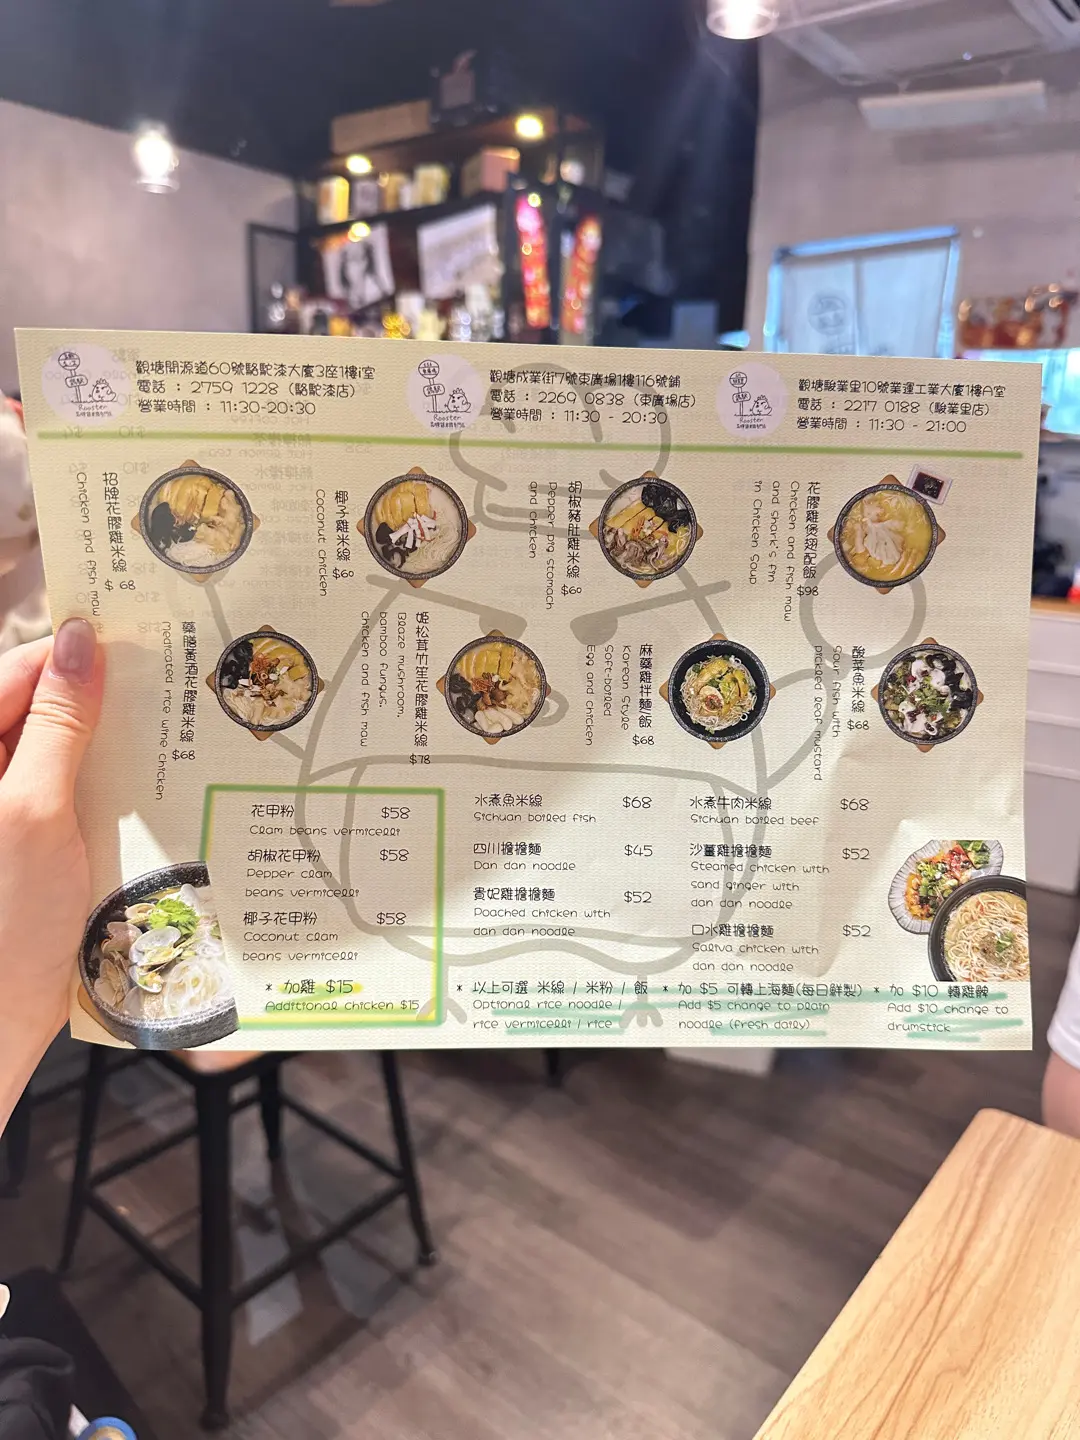 觀塘開源道60號駱駝漆大廈3座1樓i室
電話 : 2759 1228 (駱駝漆店)
營業時間 : 11:30-20:30
Rooster
觀塘成業街7號東廣場1樓116號鋪
電話 : 2269 0838 (東廣場店)
營業時間 : 11:30 - 20:30
Rooster
觀塘駿業里10號業運工業大廈1樓A室
電話 : 2217 0188 (駿業里店)
營業時間 : 11:30 - 21:00
Rooster
招牌花膠雞米線
$ 68
Chicken and fish maw
椰子雞米線
$60
Coconut chicken
胡椒豬肚雞米線
$60
Pepper pig stomach
and chicken
花膠雞煲翅配飯
$98
Chicken and fish maw
and shark's fin
in Chicken Soup
藥膳黃酒花膠雞米線
$68
Medicated rice wine chicken
姬松茸竹笙花膠雞米線
$78
Blaze mushroom,
bamboo fungus,
chicken and fish maw
麻藥雞拌麵/飯
$68
Korean Style
Soft-boiled
Egg and chicken
酸菜魚米線
$68
Sour fish with
pickled leaf mustard
花甲粉 $58
Clam beans vermicelli
胡椒花甲粉 $58
Pepper clam
beans vermicelli
椰子花甲粉 $58
Coconut clam
beans vermicelli
* 加雞 $15
Additional chicken $15
水煮魚米線 $68
Sichuan boiled fish
四川擔擔麵 $45
Dan dan noodle
貴妃雞擔擔麵 $52
Poached chicken with
dan dan noodle
水煮牛肉米線 $68
Sichuan boiled beef
沙薑雞擔擔麵 $52
Steamed chicken with
sand ginger with
dan dan noodle
口水雞擔擔麵 $52
Saliva chicken with
dan dan noodle
* 以上可選 米線 / 米粉 / 飯
Optional rice noodle /
rice vermicelli / rice
* 加 $5 可轉上海麵(每日鮮製)
Add $5 change to plain
noodle (fresh daily)
* 加 $10 轉雞髀
Add $10 change to
drumstick